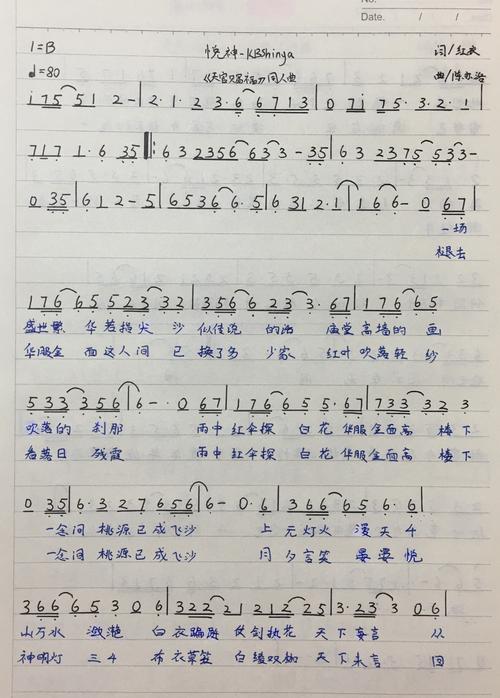 No.
Date. / /
1=B 悦神-KBShinya 词/红衣
♩=80 《天官赐福》同人曲 曲/陈亦洛
i 7 5 5 1 2 - | 2 · 1 · 2 3 · 6 6 7 1 3 | 0 7 i 7 5 · 3 · 2 · 1 |
7 1 7 1 · 6 3 5 ‖: 6 3 2 3 5 6 6 3 3 - 3 5 | 6 3 2 3 7 5 5 3 3 -
0 3 5 | 6 1 2 - 5 | 6 5 3 6 6 · 5 | 6 3 1 2 · 1 | 1 6 6 - 0 6 7 |
一场
褪去
1 7 6 6 5 5 2 3 3 2 | 3 5 6 6 2 3 3 · 6 7 | 1 7 6 6 5
盛世繁 华若指尖 沙 似传说 的 庙堂高墙的 画
华服金 面这人间 已 换了多 少家 红叶吹落轻 纱
5 3 3 3 5 6 | 6 - · 0 6 7 | 1 7 6 6 5 5 · 6 7 | 7 3 3 3 2 3
吹落的 刹那 雨中红伞探 白花 华服金面高 楼下
看落日 残霞 雨中红伞探 白花 华服金面高 楼下
0 3 5 | 6 · 3 2 7 6 5 6 | 6 - 0 · 6 | 3 6 6 6 5 6 · |
一念间 桃源已成飞沙 上元灯火 漫天
一念间 桃源已成飞沙 月夕言笑 晏晏悦
3 6 6 6 5 3 0 6 | 3 2 2 2 1 2 1 2 2 5 | 3 · 2 3 3 0 6 |
山万水 潋滟 白衣蹁跹 仗剑执花 天下妄言 从
神明灯 三千 布衣草笠 白绫双 天下未言 回